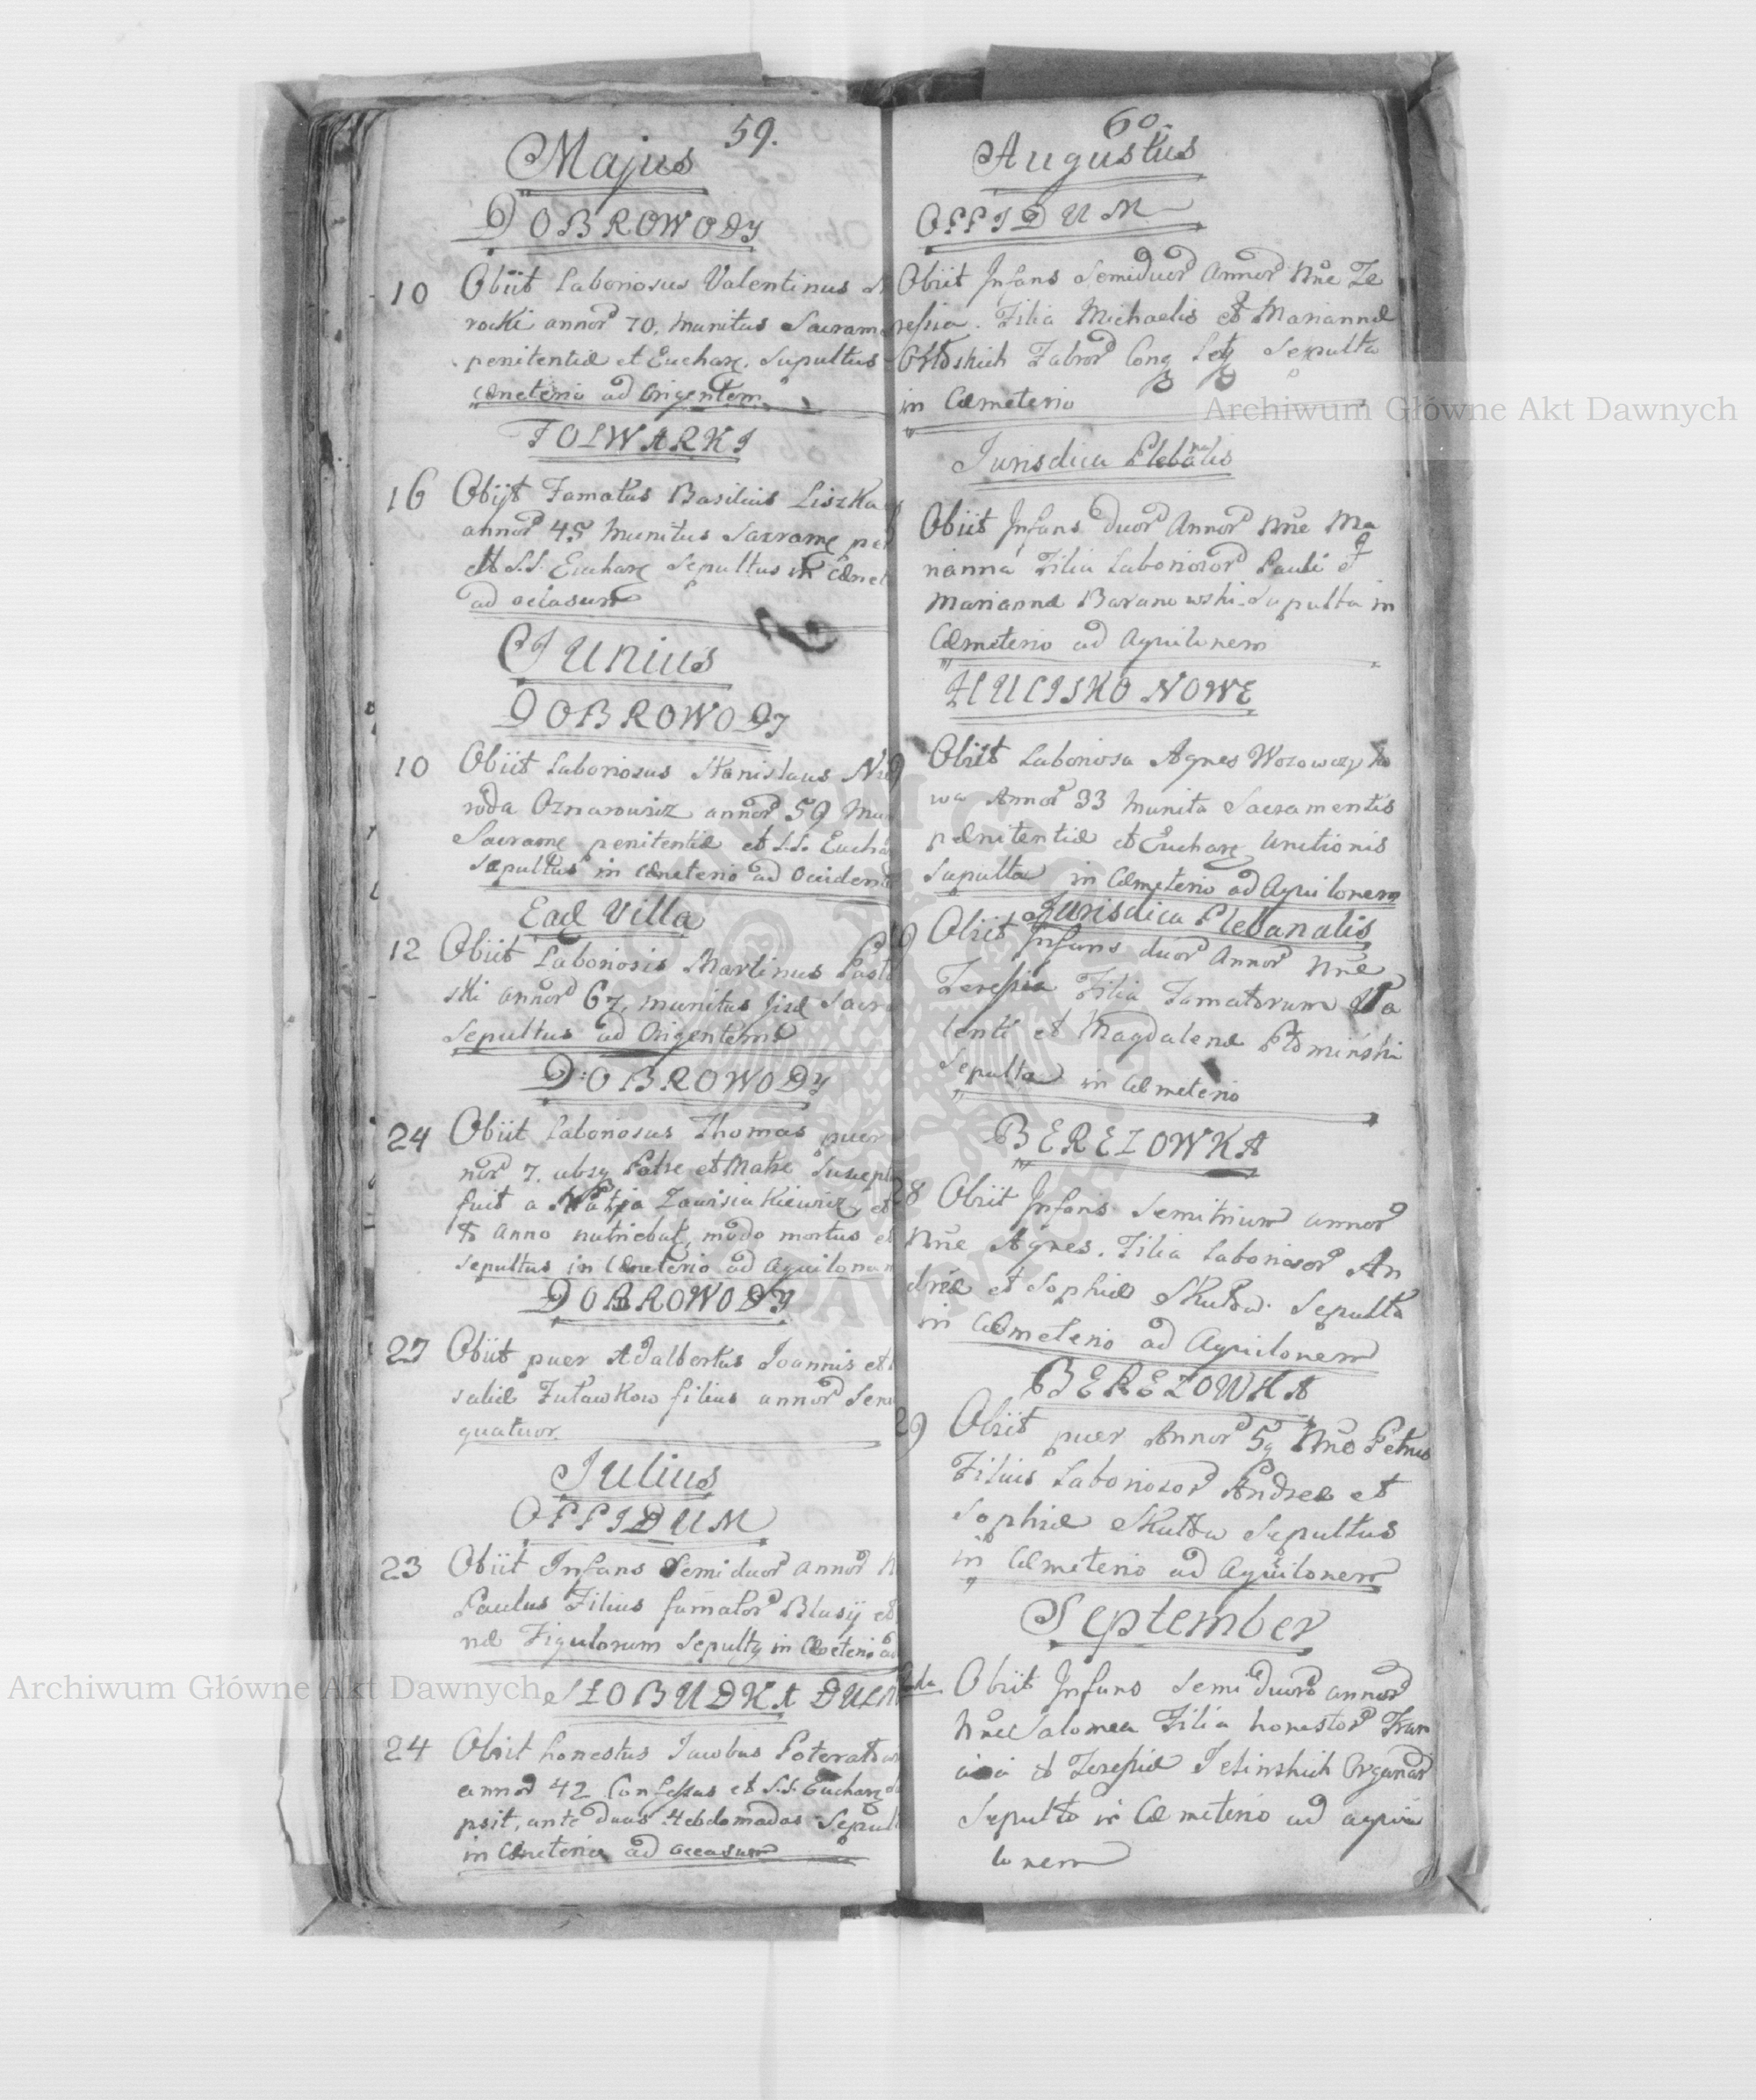 59.
Majus
DOBROWODY
10 Obiit Laboriosus Valentinus
rocki annor 70. munitus Sacram
penitentiæ et Euchar. Sepultus
Cæneterio ad Origentem
FOLWARKI
16 Obijt Famatus Basilius Liszka
annor 45 munitus Sacrame
et S.S. Euchar Sepultus in Cænet
ad occasum
Junius
DOBROWODY
10 Obiit Laboriosus Stanislaus
roda Oznarowicz annor 59
Sacrame penitentiæ et S.S. Eucha
Sepultus in Cæneterio ad Occident
Ead Villa
12 Obiit Laboriosis Martinus
ski annor 67, munitus Sacra
Sepultus ad Origentem
DOBROWODY
24 Obiit Laboriosus Thomas puer
nor 7. absq Patre et Matre Suscept
fuit a et
anno nutriebat, modo mortus
Sepultus in Cæneterio ad Aquilonam
DOBROWODY
27 Obiit puer Adalbertus Joannis et
saliæ Fuławkow filius annor
quatuor
Julius
OPPIDUM
23 Obiit Infans Semiduor annor
Paulus Filius famator Blasij et
næ Figulorum Sepultq in Cæeterio
SŁOBUDKA
24 Obiit honestus Jacobus
annor 42 Confessus et S.S. Euchar
psit, ante duas Hebdomadas Sepul
in Cæneterio ad occasum
60.
Augustus
OPPIDUM
Obiit Infans Semiduor Annor Nne Te
ressia. Filia Michaelis et Mariannæ
Fabror Sepulta
in Cæmeterio
Jurisdica Plebanalis
Obiit Infans duor Annor Nne Ma
rianna Filia Laboriosor Pauli et
Mariannæ Baranowski Sepulta in
Cæmeterio ad Aquilonem
HUCISKO NOWE
9 Obiit Laboriosa Agnes
wa Annor 33 Munita Sacramentis
pænitentiæ et Euchar Unctionis
Sepulta in Cæmeterio ad Aquilonem
Jurisdica Plebanalis
Obiit Infans duor Annor Nne
Teressia Filia Famatorum Va
lenti et Magdalenæ Płomiński
Sepulta in Cæmeterio
BEREZOWKA
28 Obiit Infans Semitrium annor
Nne Agnes. Filia Laboriosor An
dreæ et Sophiæ Sepulta
in Cæmeterio ad Aquilonem
BEREZOWKA
29 Obiit puer Annor 5q Nne Petrus
Filius Laboriosor Andreæ et
Sophiæ Sepultus
in Cæmeterio ad Aquilonem
September
Obiit Infans Semiduor annor
Nne Salomea Filia honestor Fran
cisci et Teressiæ Organar
Sepulta in Cæmeterio ad aqui
lonem
Archiwum Główne Akt Dawnych
Archiwum Główne Akt Dawnych